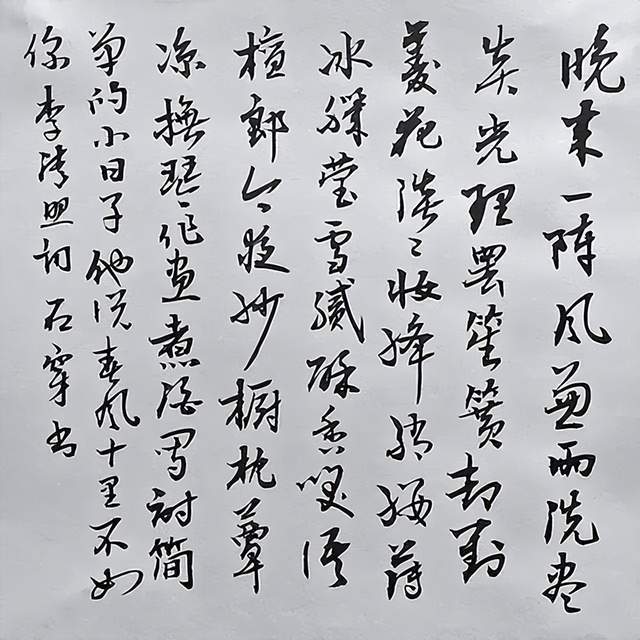 晚来一阵风兼雨洗尽
炎光理罢笙簧却对
菱花淡淡妆绛绡缕薄
冰肌莹雪腻酥香笑语
檀郎今夜纱橱枕簟
凉抚琴作画煮酒写诗简
单的小日子他说春风十里不如
你李清照词石穿书